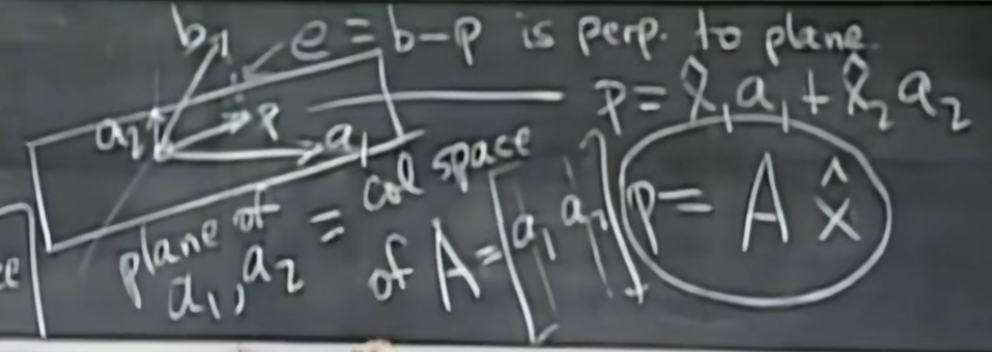 b
e = b-p is perp. to plane.
a₂
p
a₁
p = x̂₁a₁ + x̂₂a₂
plane of a₁, a₂ = col space of A = [a₁ a₂]
p = A x̂